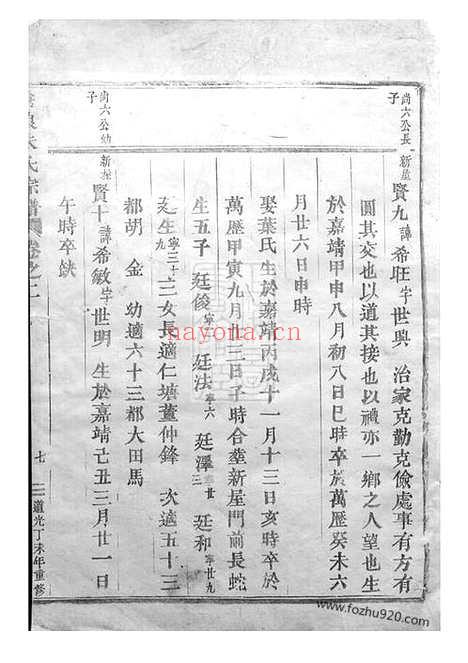 尚六公長子
新屋
賢九諱希旺字世興 治家克勤克儉處事有方有
圓其交也以道其接也以禮亦一鄉之人望也生
於嘉靖甲申八月初八日巳時卒於萬歷癸未六
月廿六日申時
娶葉氏生於嘉靖丙戌十一月十三日亥時卒於
萬歷甲寅九月十三日子時合塟新屋門前長蛇
生五子 廷俊 廷法寧六 廷澤寧廿三 廷和寧廿九
廷生寧三十九 二女長適仁塘董仲鋒 次適五十三
都胡 金 幼適六十三都大田馬
尚六公幼子
新屋
賢十諱希敏字世明 生於嘉靖己丑三月廿一日
午時卒缺
朱氏宗譜 卷之二
七
道光丁未年重修
nayona.cn
www.fozhu920.com